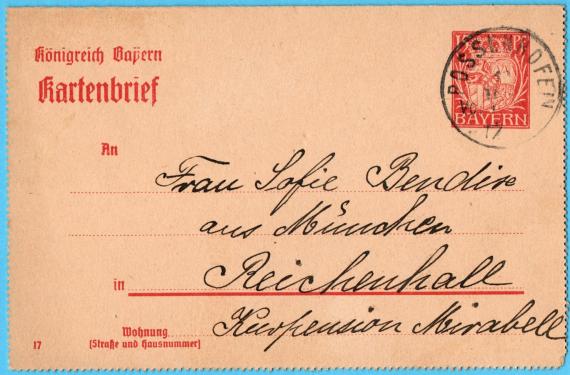 Königreich Bayern
Kartenbrief
BAYERN
POSSENHOFEN
17
An
Frau Sofie Bendix
aus München
in Reichenhall
Wohnung
(Straße und Hausnummer)
Kurpension Mirabell
17